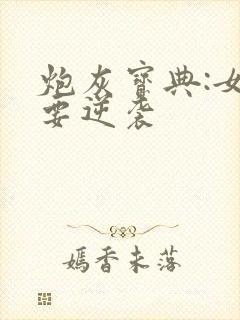 炮灰宝典:女
要逆袭
嫣香未落